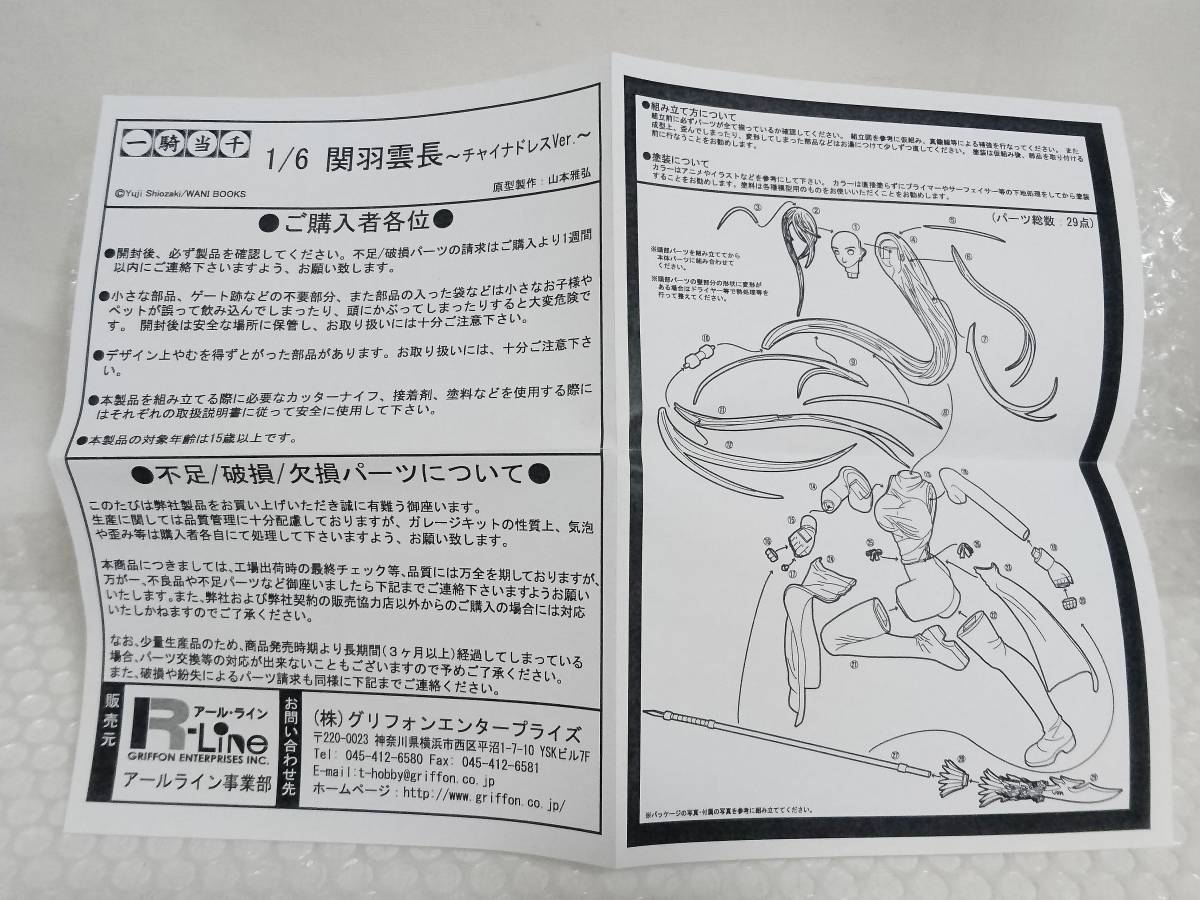 一騎当千
1/6 関羽雲長～チャイナドレスVer.～
©Yuji Shiozaki/WANI BOOKS
原型製作：山本雅弘
●ご購入者各位●
●開封後、必ず製品を確認してください。不足/破損パーツの請求はご購入より1週間
以内にご連絡下さいますよう、お願い致します。
●小さな部品、ゲート跡などの不要部分、また部品の入った袋などは小さなお子様や
ペットが誤って飲み込んでしまったり、頭にかぶってしまったりすると大変危険で
す。 開封後は安全な場所に保管し、お取り扱いには十分ご注意下さい。
●デザイン上やむを得ずとがった部品があります。お取り扱いには、十分ご注意下さ
い。
●本製品を組み立てる際に必要なカッターナイフ、接着剤、塗料などを使用する際に
はそれぞれの取扱説明書に従って安全に使用して下さい。
●本製品の対象年齢は15歳以上です。
●不足/破損/欠損パーツについて●
このたびは弊社製品をお買い上げいただき誠に有難う御座います。
生産に関しては品質管理に十分配慮しておりますが、ガレージキットの性質上、気泡
や歪み等は購入者各自にて処理して下さいますよう、お願い致します。
本商品につきましては、工場出荷時の最終チェック等、品質には万全を期しておりますが、
万が一、不良品や不足パーツなど御座いましたら下記までご連絡下さいますようお願い
いたします。また、弊社および弊社契約の販売協力店以外からのご購入の場合には対応
いたしかねますのでご了承ください。
なお、少量生産品のため、商品発売時期より長期間（３ヶ月以上）経過してしまっている
場合、パーツ交換等の対応が出来ないこともございますので予めご了承ください。
また、破損や紛失によるパーツ請求も同様に下記までご連絡ください。
販売元
アール・ライン
R-Line
GRIFFON ENTERPRISES INC.
アールライン事業部
お問い合わせ先
(株)グリフォンエンタープライズ
〒220-0023 神奈川県横浜市西区平沼1-7-10 YSKビル7F
Tel: 045-412-6580 Fax: 045-412-6581
E-mail:t-hobby@griffon.co.jp
ホームページ：http://www.griffon.co.jp/
●組み立て方について
組立前に必ずパーツが全て揃っているか確認してください。 組立図を参考に仮組み、真鍮線等による補強を行なってください。 また
成型上、歪んでしまったり、変形してしまった部品などはお湯につけて少しずつ直してください。 塗装は仮組み後、部品を取り付ける
前に行なうことをお勧めします。
●塗装について
カラーはアニメやイラストなどを参考にして下さい。 カラーは直接塗らずにプライマーやサーフェイサー等の下地処理をしてから塗装
することをお勧めします。塗料は各種模型用のものをお使いいただくことをお勧めします。
(パーツ総数：29点)
※頭部パーツを組み立ててから
本体パーツに組み合わせて
ください。
※頭部パーツの髪部分の形状に変形が
ある場合はドライヤー等で熱処理等を
行って整えてください。
①
②
③
④
⑤
⑥
⑦
⑧
⑨
⑩
⑪
⑫
⑬
⑭
⑮
⑯
⑰
⑱
⑲
⑳
㉑
㉒
㉓
㉔
㉕
㉖
㉗
㉘
㉙
※パッケージの写真・付属の写真を参考に組み立ててください。